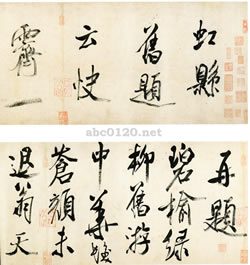 虹縣
舊題
云快
霽一
abc0120.net
再題
碧榆綠
柳舊游
中華髮
蒼顏未
退翁天